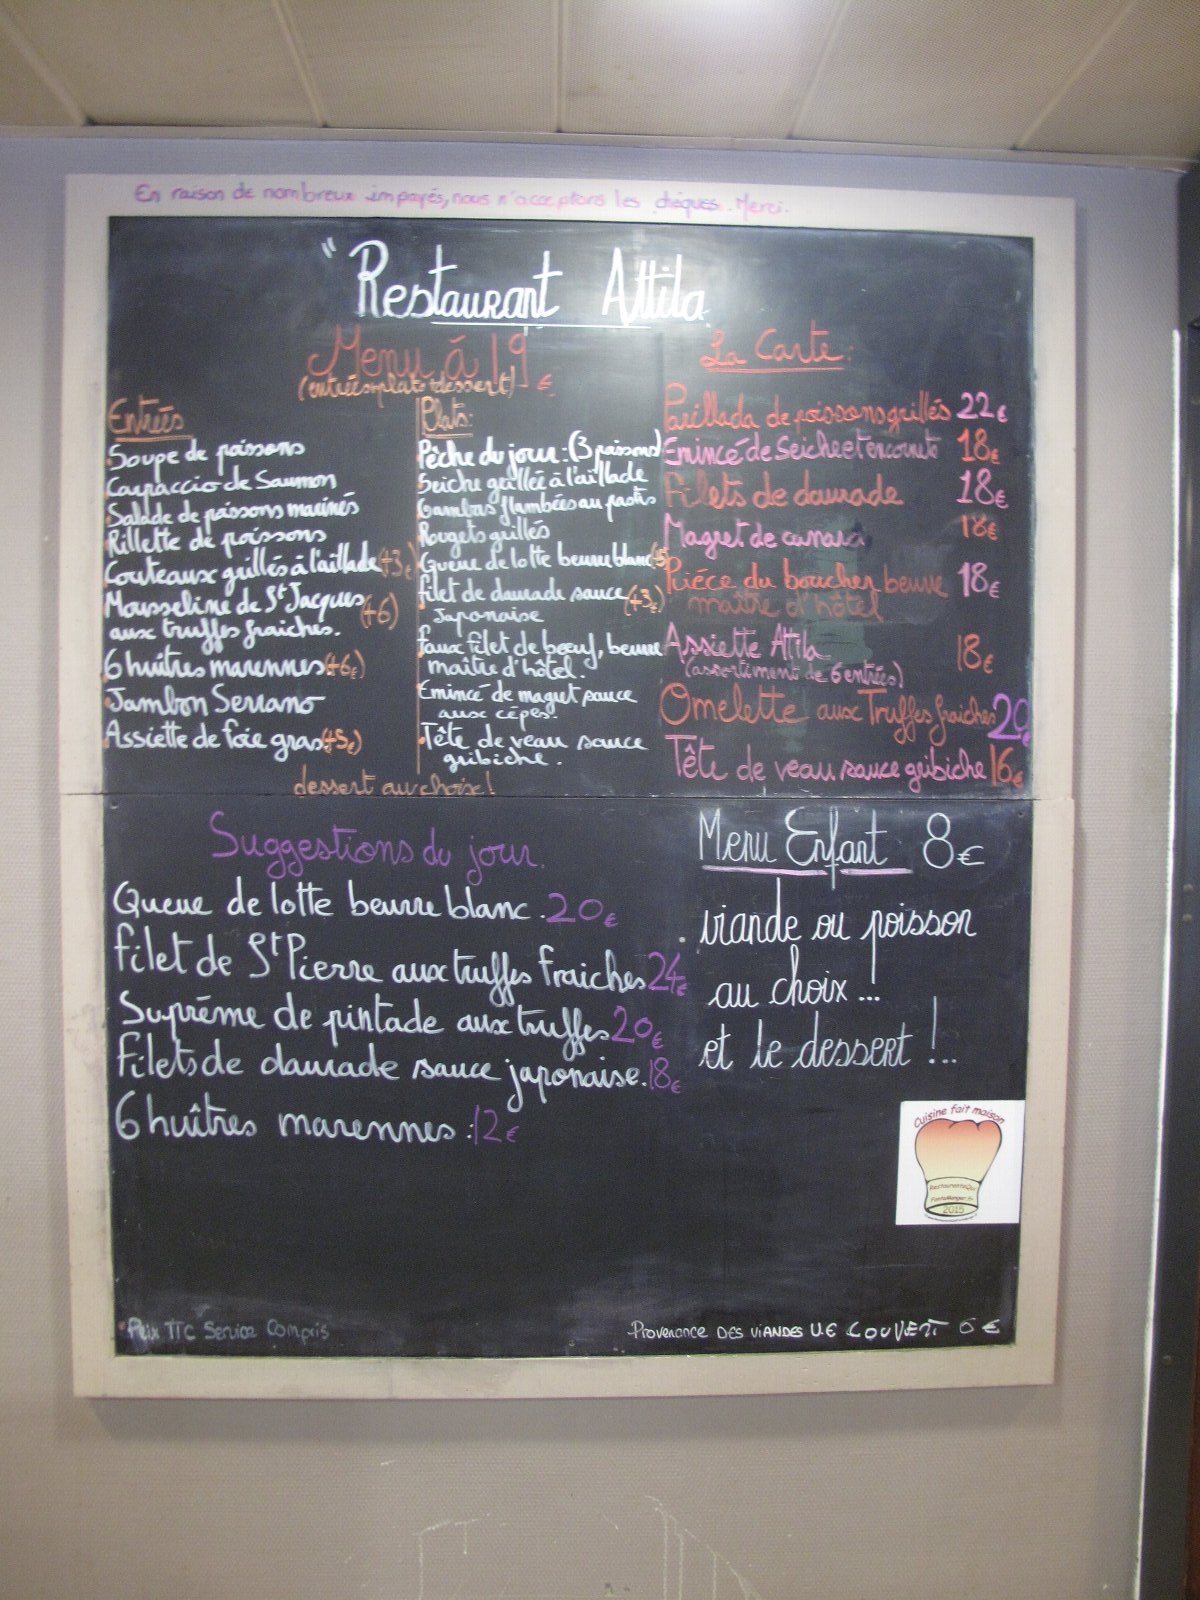 En raison de nombreux impayés, nous n'acceptons les chèques. Merci.
"Restaurant Attila
Menu à 19 €
(entrées+plats+dessert)
Entrées
Soupe de poissons
Carpaccio de Saumon
Salade de poissons marinés
Rillette de poissons
Couteaux grillés à l'aillade (+3€)
Mousseline de St Jacques (+6)
aux truffes fraiches.
6 huîtres marennes (+6€)
Jambon Serrano
Assiette de foie gras (+5€)
Plats:
Pêche du jour: (3 poissons)
Seiche grillée à l'aillade
Gambas flambées au pastis
Rougets grillés
Queue de lotte beurre blanc (+5
filet de daurade sauce (+3€)
Japonaise
faux filet de bœuf, beurre
maître d'hôtel.
Emincé de magret sauce
aux cèpes.
Tête de veau sauce
gribiche.
dessert au choix!
La Carte:
Parillada de poissons grillés 22€
Emincé de Seiche et encornets 18€
Filets de daurade 18€
Magret de canard 18€
Pièce du boucher beurre 18€
maître d'hôtel
Assiette Atila 18€
(assortiment de 6 entrées)
Omelette aux Truffes fraiches
Tête de veau sauce gribiche 16€
Suggestions du jour.
Queue de lotte beurre blanc. 20€
Filet de St Pierre aux truffes fraiches 24€
Suprême de pintade aux truffes 20€
Filets de daurade sauce japonaise. 18€
6 huîtres marennes: 12€
Menu Enfant 8€
. viande ou poisson
au choix...
et le dessert !...
Cuisine fait maison
RestaurantsQui
FontaManger.fr
2015
Prix TTC Service Compris
Provenance DES VIANDES U.E COUVERT 6 €